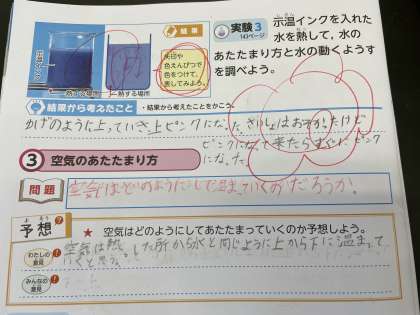 結果
矢印や
色えんぴつで
色をつけて、
表してみよう。
示温インク
熱する場所
熱する場所
実験3
143ページ
示温インクを入れた
水を熱して、水の
あたたまり方と水の動くようす
を調べよう。
結果から考えたこと
・結果から考えたことをかこう。
かげのように上っていき上ピンクになった。さいしょはおそかったけど
ピンクになって来たらすぐにピンク
になった。
3 空気のあたたまり方
問題
空気はどのようにして温まっていくのだろうか。
予想
よそう
★ 空気はどのようにしてあたたまっていくのか予想しよう。
わたしの
意見
空気は熱した所から水と同じように上から下に温まって
いくと思う。
みんなの
意見